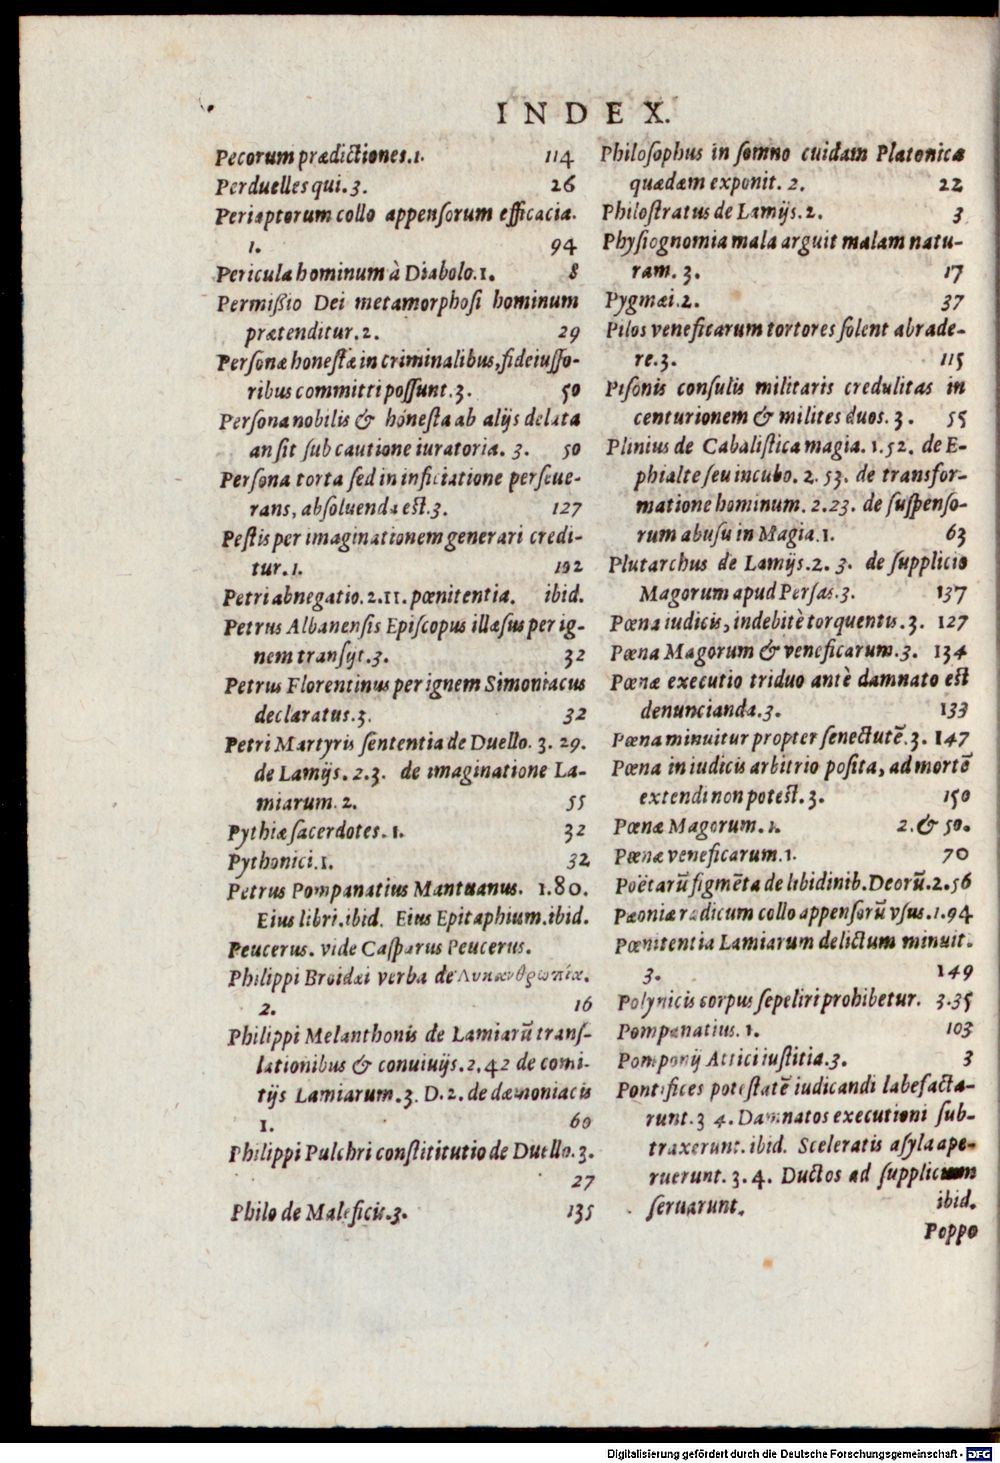 INDEX.
Pecorum prædictiones.1. 114
Perduelles qui.3. 26
Periaptorum collo appensorum efficacia.
1. 94
Pericula hominum à Diabolo.1. 8
Permißio Dei metamorphosi hominum
prætenditur.2. 29
Personæ honestæ in criminalibus, fideiusso-
ribus committi possunt.3. 50
Persona nobilis & honesta ab alijs delata
an sit sub cautione iuratoria. 3. 50
Persona torta sed in inficiatione perseue-
rans, absoluenda est.3. 127
Pestis per imaginationem generari credi-
tur.1. 102
Petri abnegatio.2.11. pœnitentia. ibid.
Petrus Albanensis Episcopus illæsus per ig-
nem transijt.3. 32
Petrus Florentinus per ignem Simoniacus
declaratus.3. 32
Petri Martyris sententia de Duello. 3. 29.
de Lamijs. 2.3. de imaginatione La-
miarum. 2. 55
Pythiæ sacerdotes.1. 32
Pythonici.1. 32
Petrus Pompanatius Mantuanus. 1.80.
Eius libri.ibid. Eius Epitaphium.ibid.
Peucerus. vide Casparus Peucerus.
Philippi Broidæi verba de Λυκανθρωπίας.
2. 16
Philippi Melanthonis de Lamiarũ trans-
lationibus & conuiuijs.2.42 de comi-
tijs Lamiarum.3. D.2. de dæmoniacis
1. 60
Philippi Pulchri constititutio de Duello.3.
27
Philo de Maleficis.3. 135
Philosophus in somno cuidam Platonica
quædam exponit. 2. 22
Philostratus de Lamijs.2. 3
Physiognomia mala arguit malam natu-
ram. 3. 17
Pygmæi.2. 37
Pilos veneficarum tortores solent abrade-
re.3. 115
Pisonis consulis militaris credulitas in
centurionem & milites duos. 3. 55
Plinius de Cabalistica magia. 1.52. de E-
phialte seu incubo. 2. 53. de transfor-
matione hominum. 2.23. de suspenso-
rum abusu in Magia.1. 63
Plutarchus de Lamijs.2. 3. de supplicio
Magorum apud Persas.3. 137
Pœna iudicis, indebitè torquentis.3. 127
Pœna Magorum & veneficarum.3. 134
Pœnæ executio triduo antè damnato est
denuncianda.3. 133
Pœna minuitur propter senectutẽ.3. 147
Pœna in iudicis arbitrio posita, ad mortẽ
extendi non potest. 3. 150
Pœnæ Magorum.1. 2.& 50.
Pœnæ veneficarum.1. 70
Poëtarũ figmẽta de libidinib. Deorũ.2.56
Pæoniæ radicum collo appensorũ vsus.1.94
Pœnitentia Lamiarum delictum minuit.
3. 149
Polynicis corpus sepeliri prohibetur. 3.35
Pompanatius.1. 103
Pomponij Attici iustitia.3. 3
Pontifices potestatẽ iudicandi labefacta-
runt.3 4. Damnatos executioni sub-
traxerunt. ibid. Sceleratis asyla ape-
ruerunt. 3.4. Ductos ad supplicium
seruarunt. ibid.
Poppo
Digitalisierung gefördert durch die Deutsche Forschungsgemeinschaft - DFG